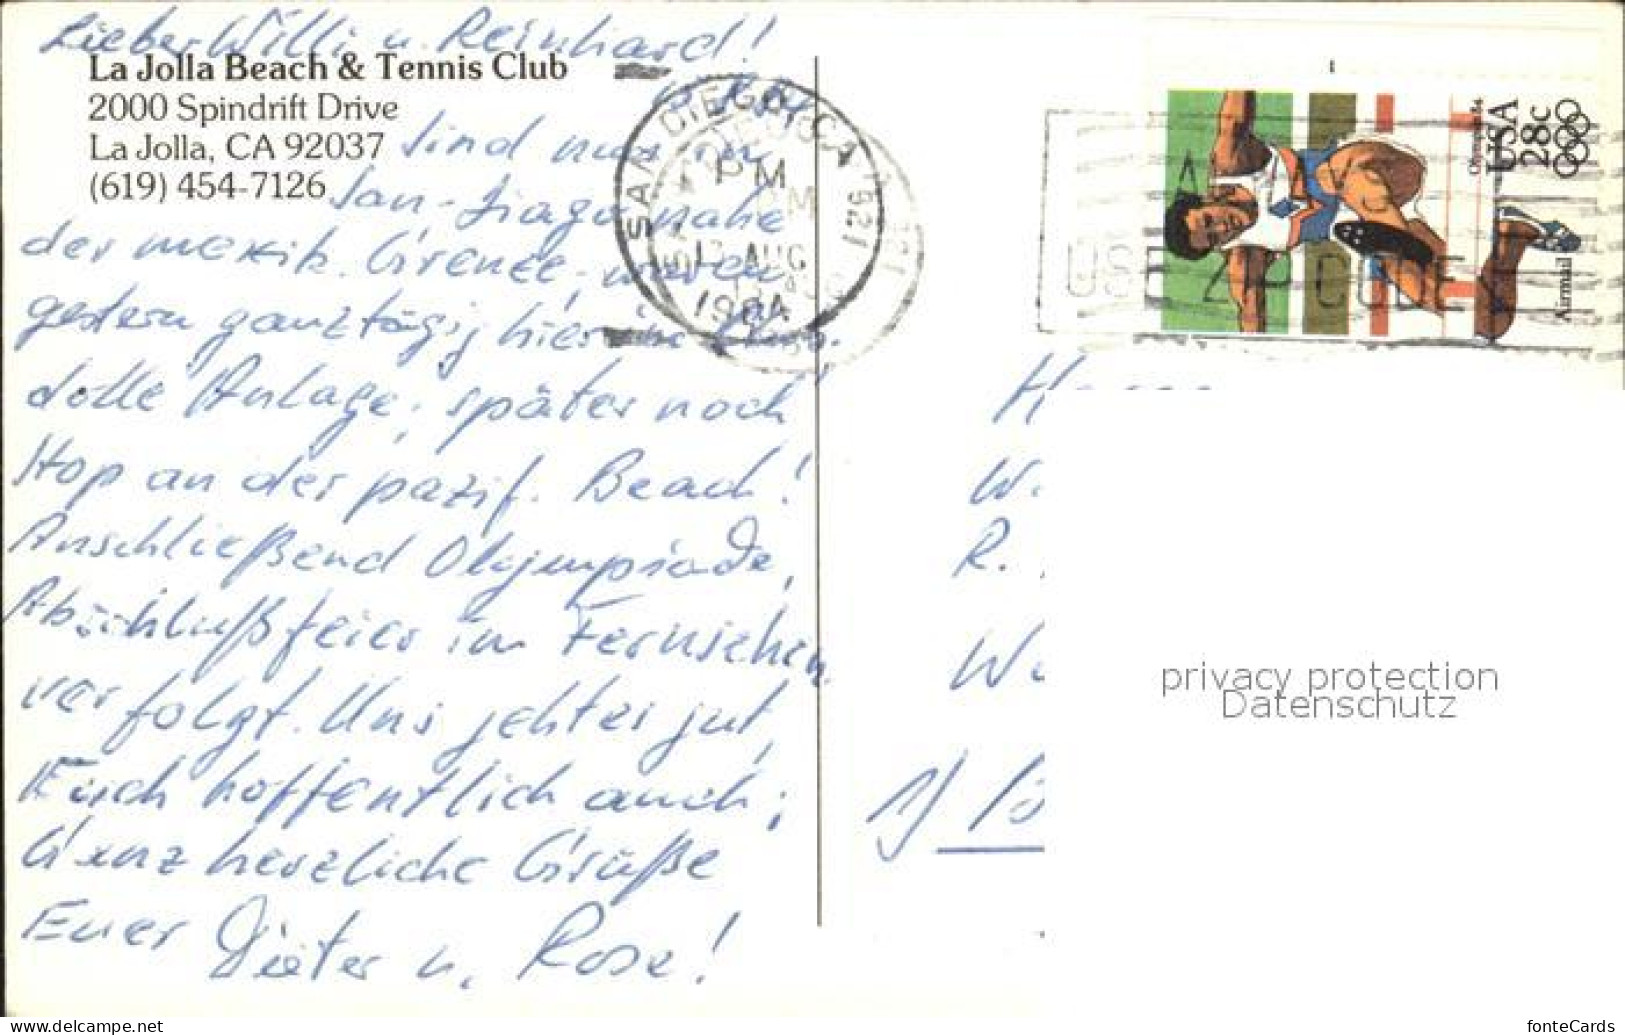 Lieber Willi u. Reinhard!
La Jolla Beach & Tennis Club
2000 Spindrift Drive
La Jolla, CA 92037
(619) 454-7126
sind nun in
San-Diago nahe
der mexik. Grenze, waren
gestern ganztägig hier in
dolle Anlage, später noch
Stop an der pazif. Beach!
Anschließend Olympiade,
Abschlußfeier im Fernsehen
verfolgt. Uns gehtes gut,
Euch hoffentlich auch;
Ganz herzliche Grüße
Euer Dieter u. Rose!
SAN DIEGO CA 921
PM
13 AUG
1984
USE ZIP CODE
USA
28c
Olympics 84
Airmail
1
H
W
R.
W
privacy protection
Datenschutz
fonteCards
www.delcampe.net